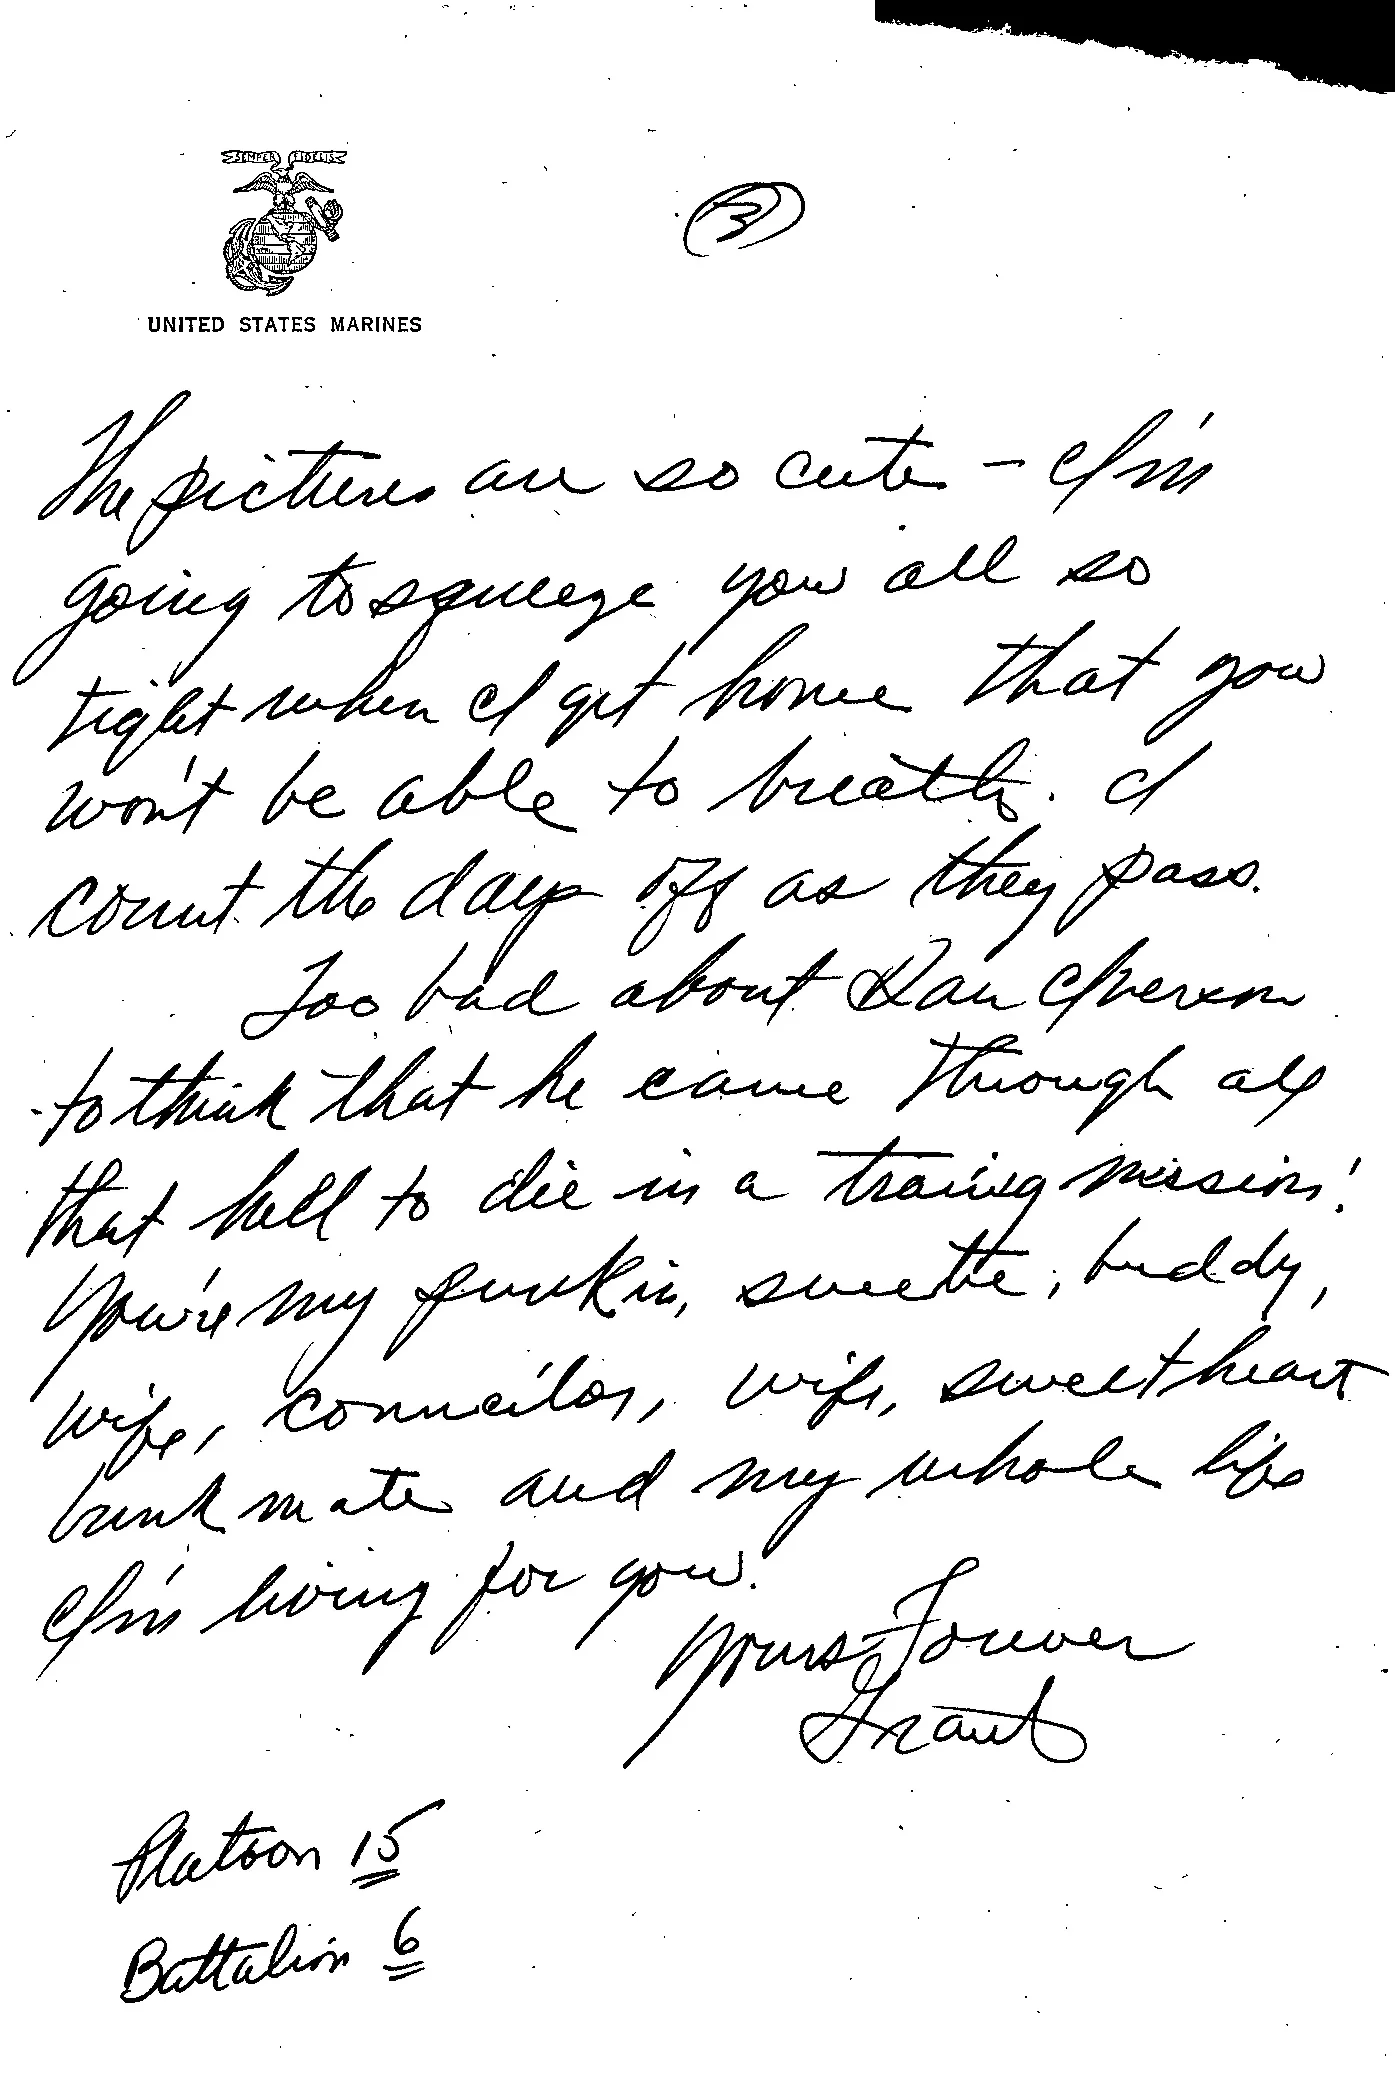 SEMPER FIDELIS
3
UNITED STATES MARINES
The pictures are so cute - I'm
going to squeeze you all so
tight when I get home that you
won't be able to breath. I
count the days off as they pass.
Too bad about Dan Iverson
to think that he came through all
that hell to die in a traing mission!
You're my punkin, sweetie, buddy,
wife, councilor, wife, sweetheart
bunk mate and my whole life
I'm living for you.
Yours Forever
Grant
Platoon 15
Battalion 6